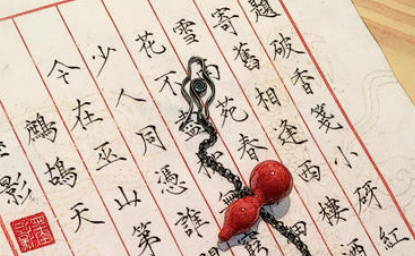 題破香箋小砑紅
寄舊相逢西樓酒
雪苑春
花不盡柳無窮
少人同憑誰
今在巫山第
鷓鴣天
影